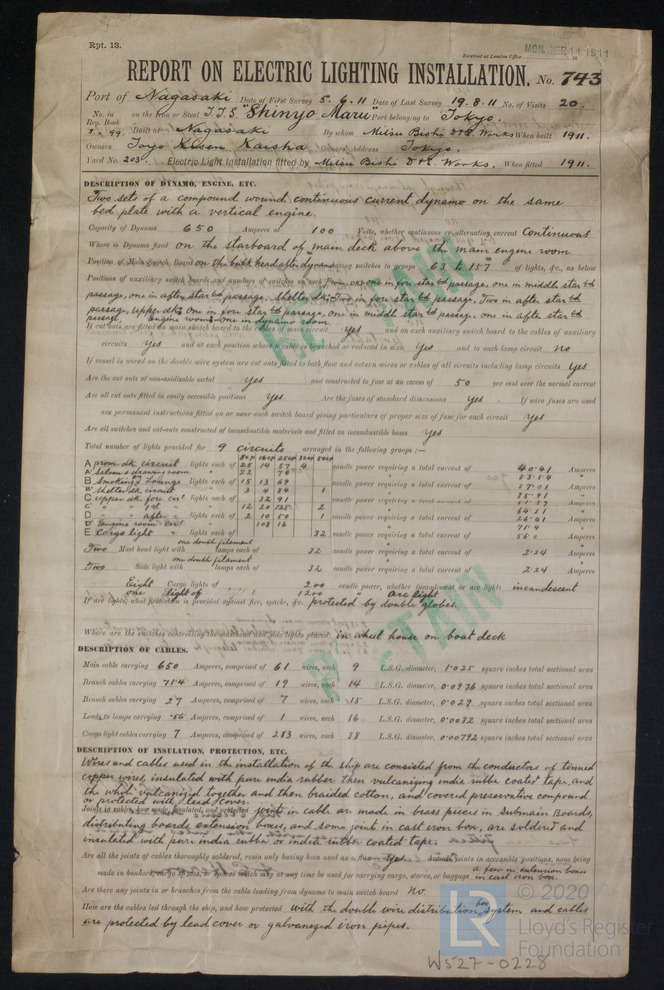 Rpt. 13.
Received at London Office
MON. SEP 11 1911
REPORT ON ELECTRIC LIGHTING INSTALLATION. No. 743
Port of Nagasaki Date of First Survey 5.6.11 Date of Last Survey 19.8.11 No. of Visits 20.
No. in Reg. Book on the Iron or Steel T.S.S. "Shinyo Maru" Port belonging to Tokyo.
Built at Nagasaki By whom Mitsu Bishi D & E. Works When built 1911.
Owners Toyo Kisen Kaisha Owners' Address Tokyo.
Yard No. 203. Electric Light Installation fitted by Mitsu Bishi D & E. Works. When fitted 1911.
DESCRIPTION OF DYNAMO, ENGINE, ETC.
Two sets of a compound wound continuous current dynamo on the same
bed plate with a vertical engine.
Capacity of Dynamo 650 Amperes at 100 Volts, whether continuous or alternating current Continuous
Where is Dynamo fixed on the starboard of main deck above the main engine room
Position of Main Switch Board on the bulk head after dynamo having switches to groups 63 to 157 of lights, &c., as below
Positions of auxiliary switch boards and numbers of switches on each Prom. dk, one in for star bd passage, one in middle star bd
passage, one in after star bd passage. Shelter dk, Two in for star bd passage, Two in after star bd
passage, upper dk, one in for star bd passage, one in middle star bd passage. one in after star bd
passage, Engine room - one in dynamo room.
If cut outs are fitted on main switch board to the cables of main circuit Yes and on each auxiliary switch board to the cables of auxiliary
circuits Yes and at each position where a cable is branched or reduced in size Yes and to each lamp circuit no
If vessel is wired on the double wire system are cut outs fitted to both flow and return wires or cables of all circuits including lamp circuits Yes
Are the cut outs of non-oxidizable metal Yes and constructed to fuse at an excess of 50 per cent over the normal current
Are all cut outs fitted in easily accessible positions Yes Are the fuses of standard dimensions Yes If wire fuses are used
are permanent instructions fitted on or near each switch board giving particulars of proper size of fuse for each circuit Yes
Are all switches and cut-outs constructed of incombustible materials and fitted on incombustible bases Yes
Total number of lights provided for 9 circuits arranged in the following groups :—
A prom dk circuit lights each of 25 14 57 4 candle power requiring a total current of 40.41 Amperes
A' Saloon & drawing room
B Smoking & Lounge lights each of 15 13 69 candle power requiring a total current of
B' Shelter dk circuit
C upper dk for cir. lights each of candle power requiring a total current of
D after lights each of 2 10 50 1 candle power requiring a total current of 26.41 Amperes
D' Engine room cir. 108 16 71.4
E Cargo light lights each of 32 candle power requiring a total current of 56.0 Amperes
Two Mast head light with one double filament lamps each of 32 candle power requiring a total current of 2.24 Amperes
Two Side light with one double filament lamps each of 32 candle power requiring a total current of 2.24 Amperes
Eight Cargo lights of 200 candle power, whether incandescent or arc lights incandescent
one light of 1200 Arc light
If arc lights, what protection is provided against fire, sparks, &c. protected by double globes.
Where are the switches controlling the masthead and side lights placed in wheel house on boat deck
DESCRIPTION OF CABLES.
Main cable carrying 650 Amperes, comprised of 61 wires, each 9 L.S.G. diameter, 1.025 square inches total sectional area
Branch cables carrying 71.4 Amperes, comprised of 19 wires, each 14 L.S.G. diameter, 0.0976 square inches total sectional area
Branch cables carrying 27 Amperes, comprised of 7 wires, each 15 L.S.G. diameter, 0.029 square inches total sectional area
Leads to lamps carrying .56 Amperes, comprised of 1 wires, each 16 L.S.G. diameter, 0.0032 square inches total sectional area
Cargo light cables carrying 7 Amperes, comprised of 283 wires, each 38 L.S.G. diameter, 0.00792 square inches total sectional area
DESCRIPTION OF INSULATION, PROTECTION, ETC.
Wires and cables used in the installation of the ship are consisted from the conductors of tinned
copper wires, insulated with pure india rubber then vulcanizing india rubber coated tape, and
the whole vulcanized together and then braided cotton, and covered preservative compound
or protected with lead cover.
Joints in cables, how made, insulated, and protected joint in cable are made in brass pieces in Submain Boards,
distributing boards, extension boxes, and some joint in cast iron box, are soldered and
insulated with pure india rubber or india rubber coated tape.
Are all the joints of cables thoroughly soldered, resin only having been used as a flux Yes Are all joints in accessible positions, none being
made in bunkers, cargo spaces, or spaces which may at any time be used for carrying cargo, stores, or baggage a few in extension boxes in cast iron box.
Are there any joints in or branches from the cable leading from dynamo to main switch board No.
How are the cables led through the ship, and how protected with the double wire distribution box system and cables
are protected by lead cover or galvanized iron pipes.
RETAIN
RETAIN
LR
© 2020
Lloyd's Register
Foundation
W527-0228